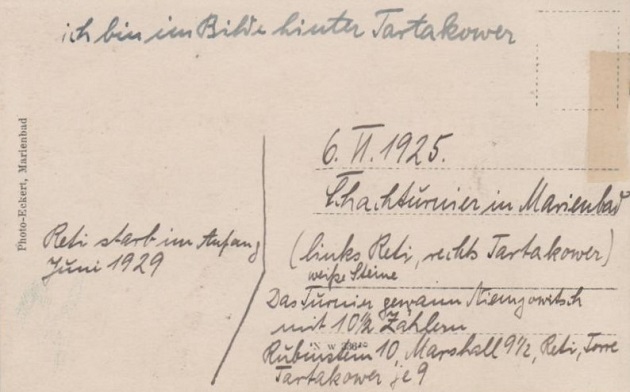 ich bin im Bilde hinter Tartakower
6. VI. 1925.
Schachturnier in Marienbad
(links Reti, rechts Tartakower)
weiße Steine
Das Turnier gewann Niemzowitsch
mit 10½ Zählern
Rubinstein 10, Marshall 9½, Reti, Torre
Tartakower je 9
Reti starb im Anfang
Juni 1929
Photo-Eckert, Marienbad